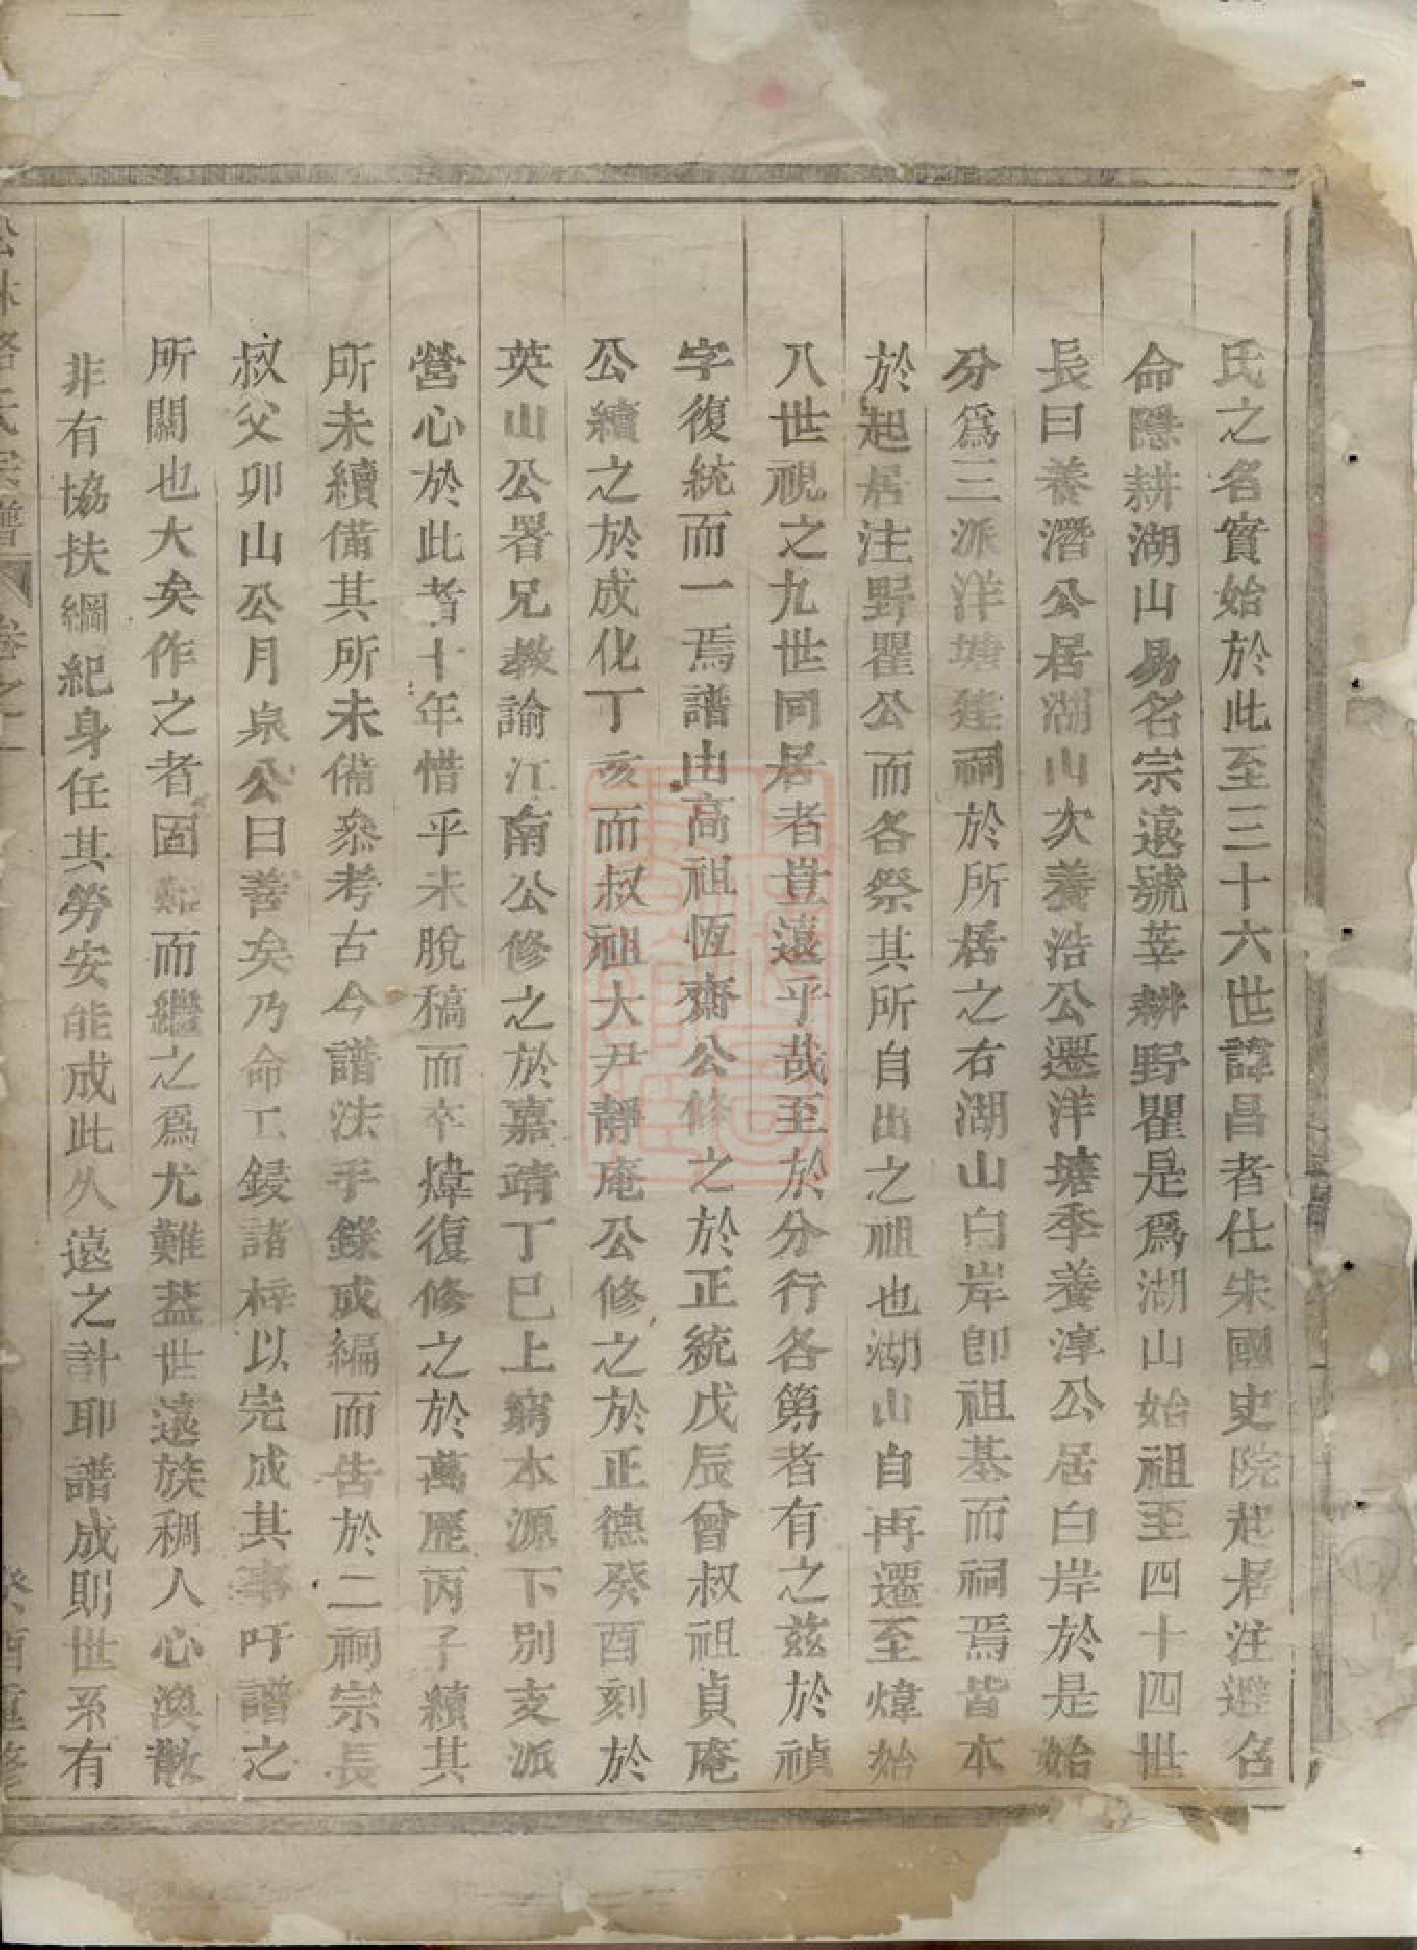 氏之名實始於此至三十六世諱昌者仕宋國史院起居注避名
命隱耕湖山易名宗遠號莘耕野瞿是爲湖山始祖至四十四世
長曰養潛公居湖山次養浩公遷洋塘季養淳公居白岸於是始
分爲三派洋塘建祠於所居之右湖山白岸卽祖基而祠焉皆本
於起居注野瞿公而各祭其所自出之祖也湖山自再遷至煒始
八世視之九世同居者豈遠乎哉至於分行各第者有之茲於禎
字復統而一焉譜由高祖恆齋公修之於正統戊辰曾叔祖貞庵
公續之於成化丁亥而叔祖大尹靜庵公修之於正德癸酉刻於
英山公署兄教諭江南公修之於嘉靖丁巳上窮本源下別支派
營心於此者十年惜乎未脫稿而卒煒復修之於萬歷丙子續其
所未續備其所未備叅考古今譜法手錄成編而告於二祠宗長
叔父卯山公月泉公曰善矣乃命工鋟諸梓以完成其事吁譜之
所關也大矣作之者固難而繼之爲尤難蓋世遠族稠人心渙散
非有協扶綱紀身任其勞安能成此久遠之計耶譜成則世系有
林駱氏宗譜 卷之上 癸酉重修